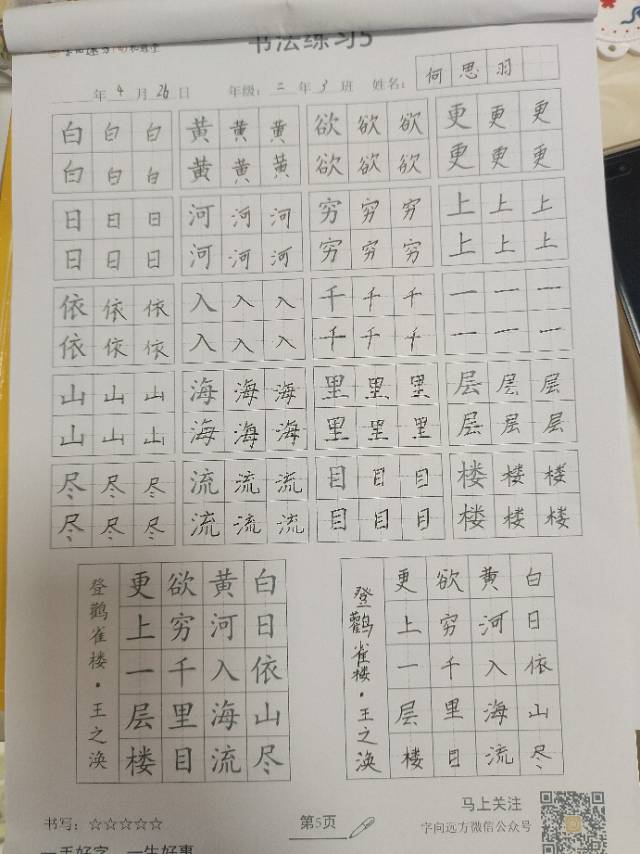 书法练习5
年4月26日 年级:二年3班 姓名:何思羽
白白白 黄黄黄 欲欲欲 更更更
白白白 黄黄黄 欲欲欲 更更更
日日日 河河河 穷穷穷 上上上
日日日 河河河 穷穷穷 上上上
依依依 入入入 千千千 一一一
依依依 入入入 千千千 一一一
山山山 海海海 里里里 层层层
山山山 海海海 里里里 层层层
尽尽尽 流流流 目目目 楼楼楼
尽尽尽 流流流 目目目 楼楼楼
登鹳雀楼·王之涣
白日依山尽
黄河入海流
欲穷千里目
更上一层楼
登鹳雀楼·王之涣
白日依山尽
黄河入海流
欲穷千里目
更上一层楼
马上关注
书写:☆☆☆☆☆ 第5页 字向远方微信公众号
一手好字 一生好事